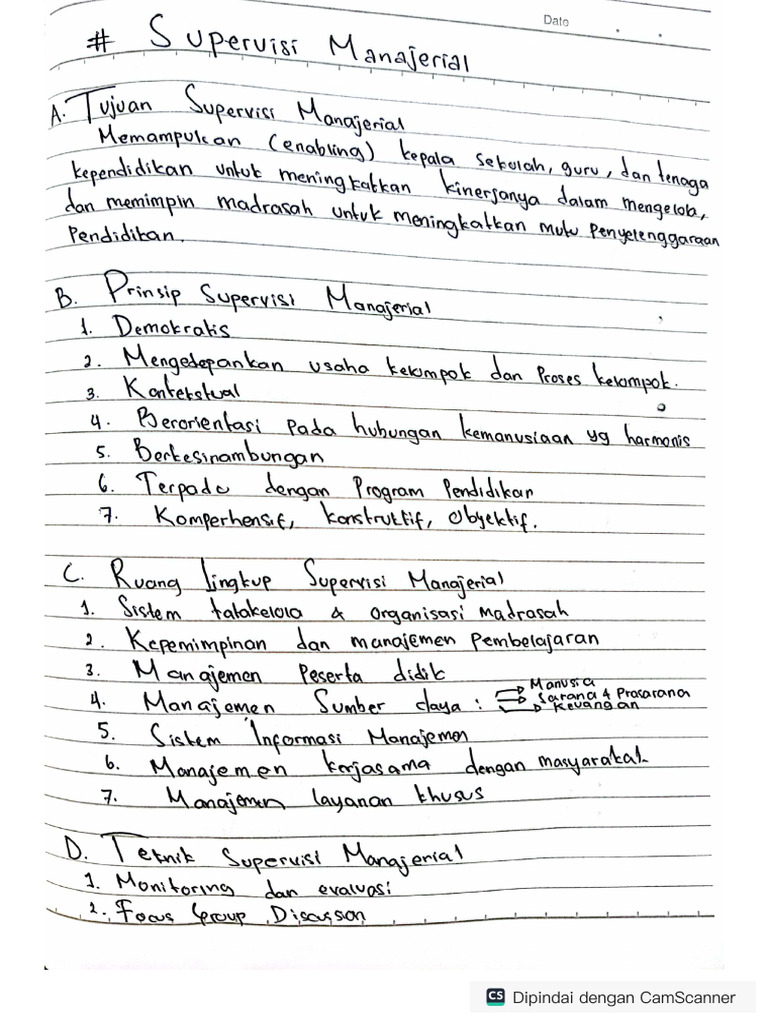 Date
# Supervisi Manajerial
A. Tujuan Supervisi Manajerial
Memampukan (enabling) kepala sekolah, guru, dan tenaga
kependidikan untuk meningkatkan kinerjanya dalam mengelola,
dan memimpin madrasah untuk meningkatkan mutu Penyelenggaraan
Pendidikan.
B. Prinsip Supervisi Manajerial
1. Demokratis
2. Mengedepankan usaha kelompok dan Proses kelompok.
3. Kontekstual
4. Berorientasi pada hubungan kemanusiaan yg harmonis
5. Berkesinambungan
6. Terpadu dengan Program Pendidikan
7. Komperhensif, konstruktif, Obyektif.
C. Ruang lingkup Supervisi Manajerial
1. Sistem tatakelola & organisasi madrasah
2. Kepemimpinan dan manajemen Pembelajaran
3. Manajemen Peserta didik
4. Manajemen Sumber daya : → Manusia
→ Sarana & Prasarana
→ Keuangan
5. Sistem Informasi Manajemen
6. Manajemen kerjasama dengan masyarakat
7. Manajemen layanan khusus
D. Teknik Supervisi Manajerial
1. Monitoring dan evaluasi
2. Focus Group Discusson
CS Dipindai dengan CamScanner